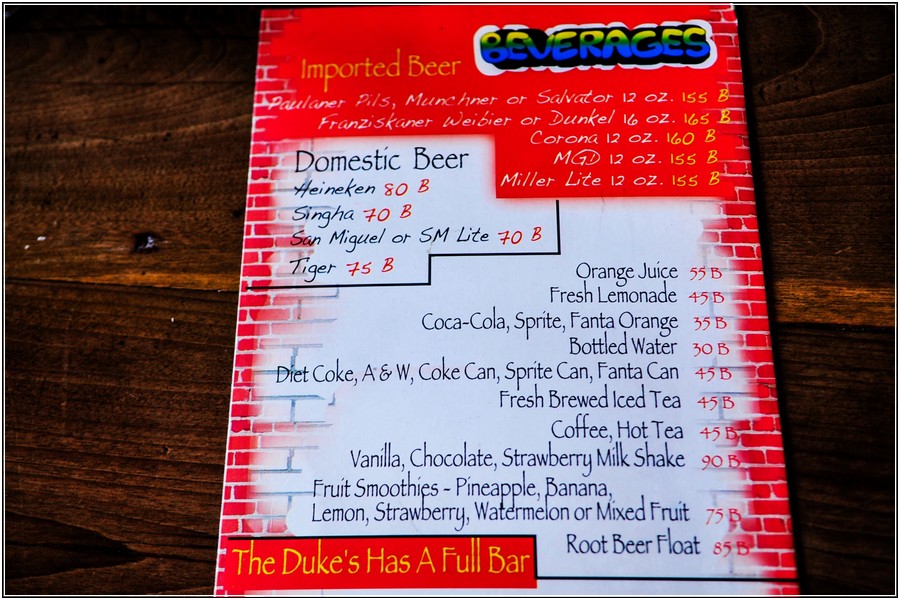 BEVERAGES
Imported Beer
Paulaner Pils, Munchner or Salvator 12 oz. 155 B
Franziskaner Weibier or Dunkel 16 oz. 165 B
Corona 12 oz. 160 B
MGD 12 oz. 155 B
Miller Lite 12 oz. 155 B
Domestic Beer
Heineken 80 B
Singha 70 B
San Miguel or SM Lite 70 B
Tiger 75 B
Orange Juice 55 B
Fresh Lemonade 45 B
Coca-Cola, Sprite, Fanta Orange 35 B
Bottled Water 30 B
Diet Coke, A & W, Coke Can, Sprite Can, Fanta Can 45 B
Fresh Brewed Iced Tea 45 B
Coffee, Hot Tea 45 B
Vanilla, Chocolate, Strawberry Milk Shake 90 B
Fruit Smoothies - Pineapple, Banana,
Lemon, Strawberry, Watermelon or Mixed Fruit 75 B
Root Beer Float 85 B
The Duke's Has A Full Bar